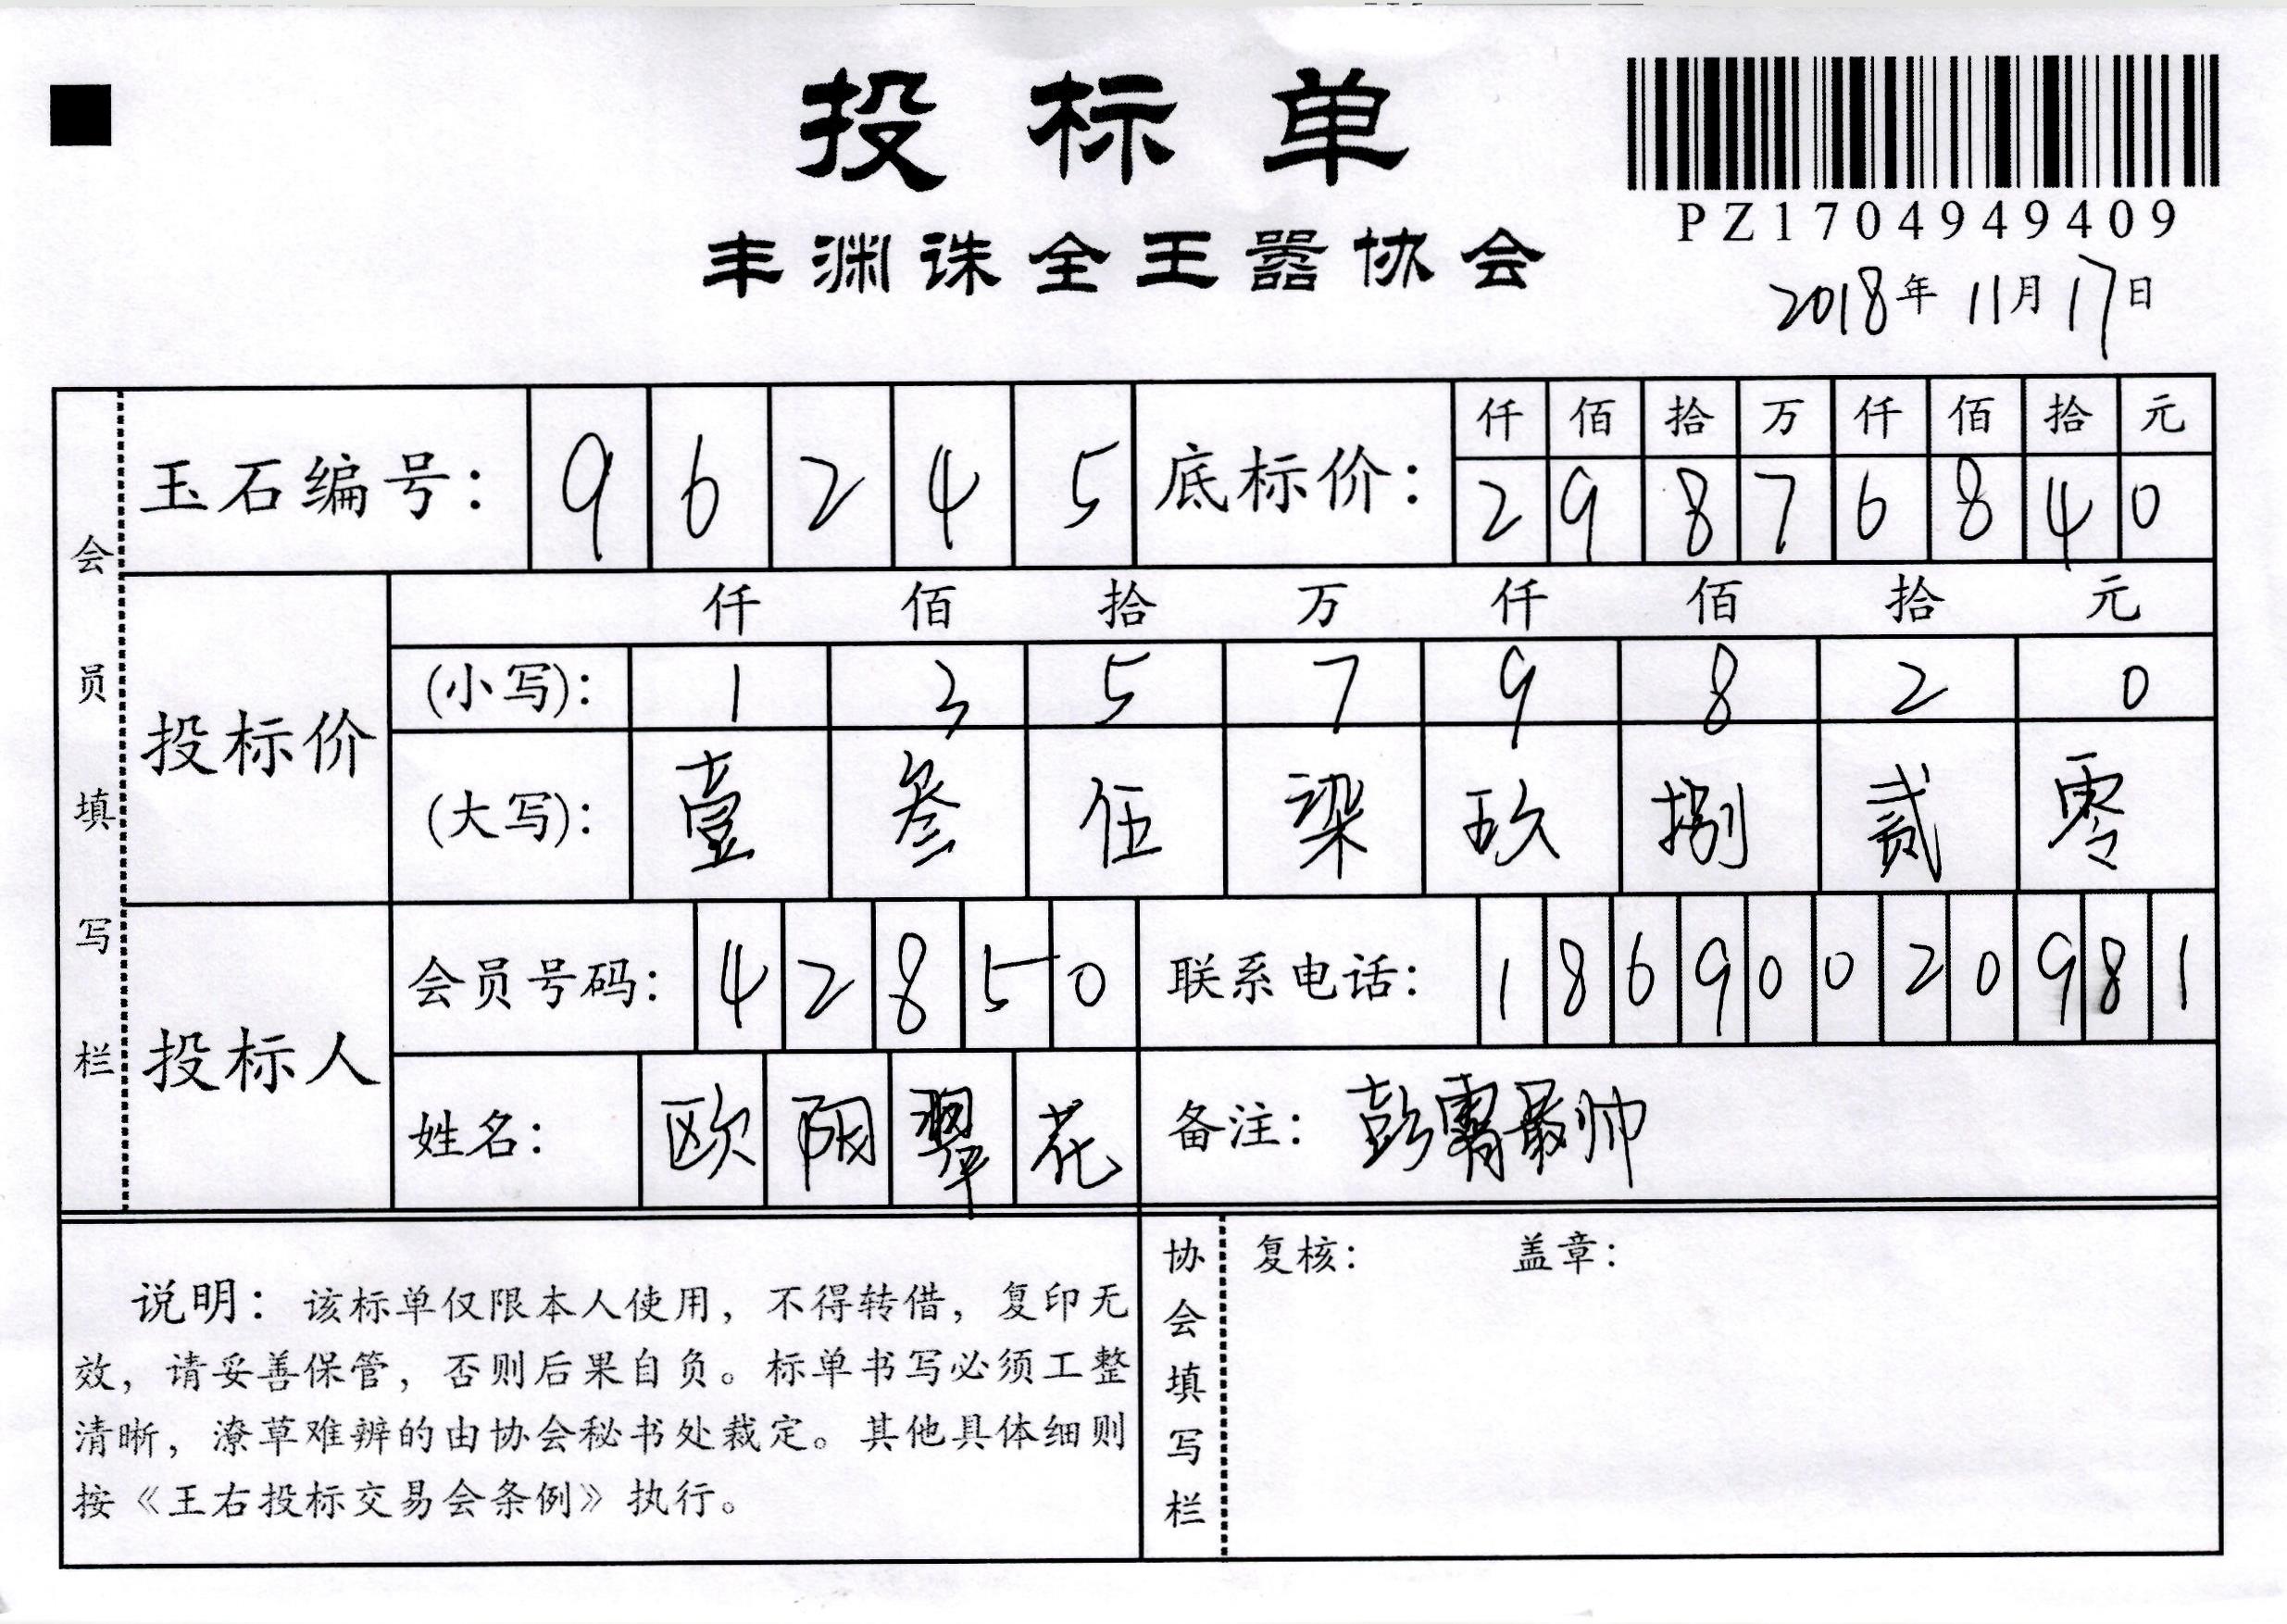 投标单
PZ1704949409
丰渊诛全王嚣协会
2018年11月17日
会员填写栏
玉石编号：96245
底标价：
仟佰拾万仟佰拾元
29876840
投标价
仟佰拾万仟佰拾元
(小写)：13579820
(大写)：壹叁伍柒玖捌贰零
投标人
会员号码：42850
联系电话：18690020981
姓名：欧阳翠花
备注：彭霄最帅
说明：该标单仅限本人使用，不得转借，复印无
效，请妥善保管，否则后果自负。标单书写必须工整
清晰，潦草难辨的由协会秘书处裁定。其他具体细则
按《王右投标交易会条例》执行。
协会填写栏
复核：
盖章：